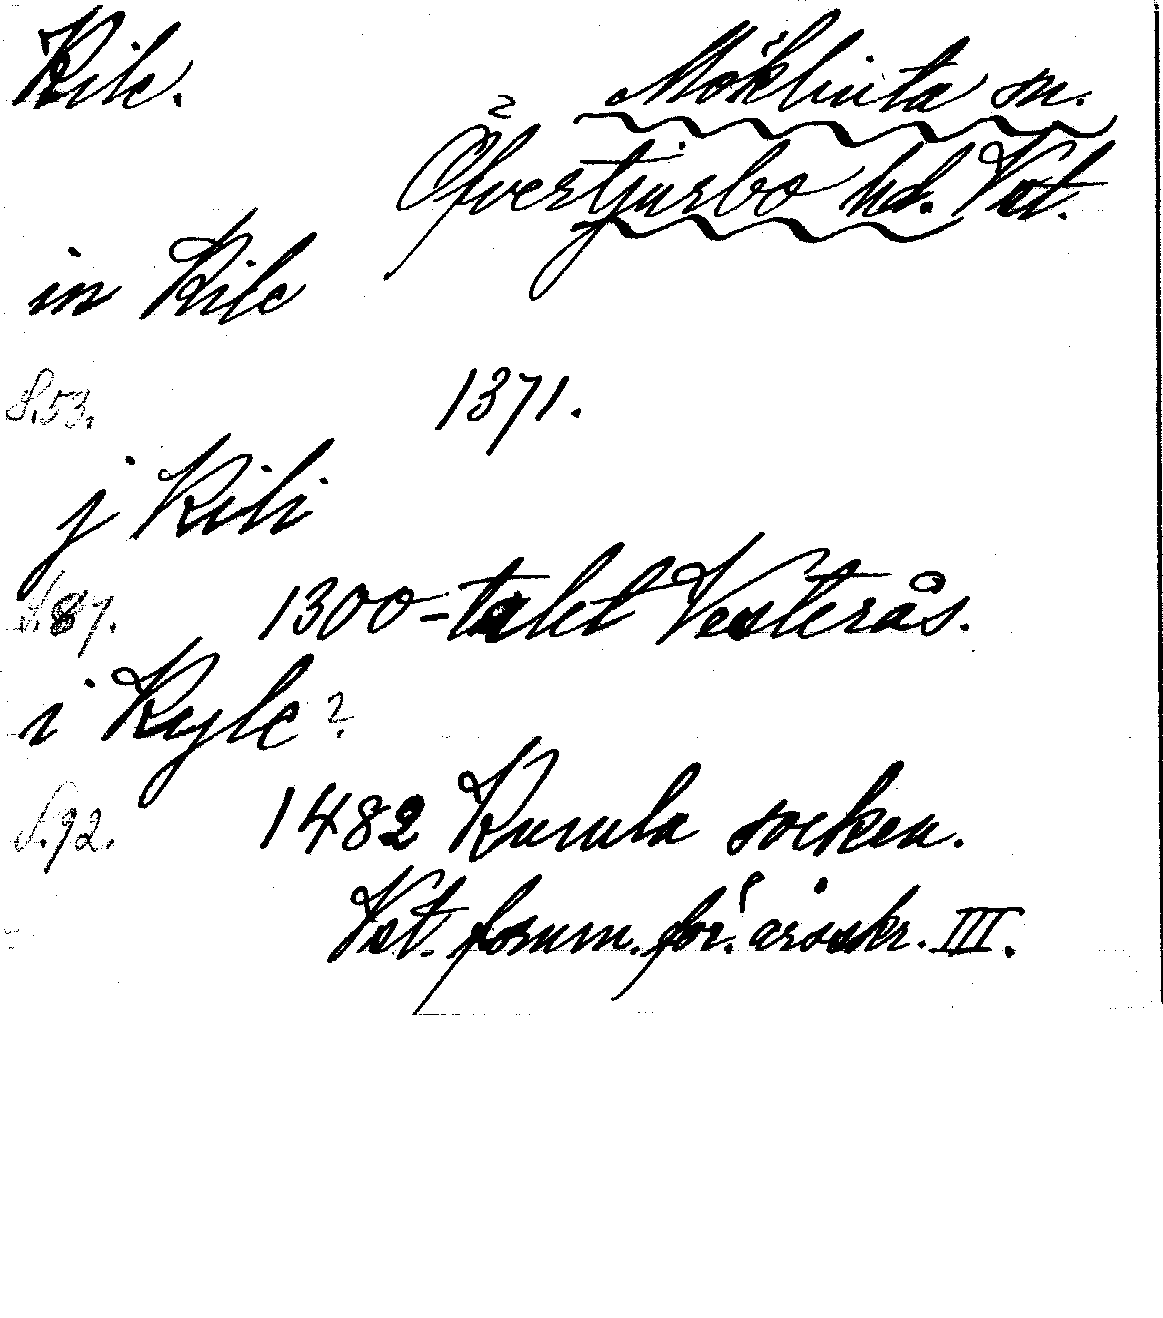 Kile.
Möklinta sn.
Öfvertjurbo hd. Vst.
in Kile
S.53. 1371.
j Kili
S.87. 1300-talet Vesterås.
i Kyle?
S.92. 1482 Kumla socken.
Vst. fornm. för. årsskr. III.